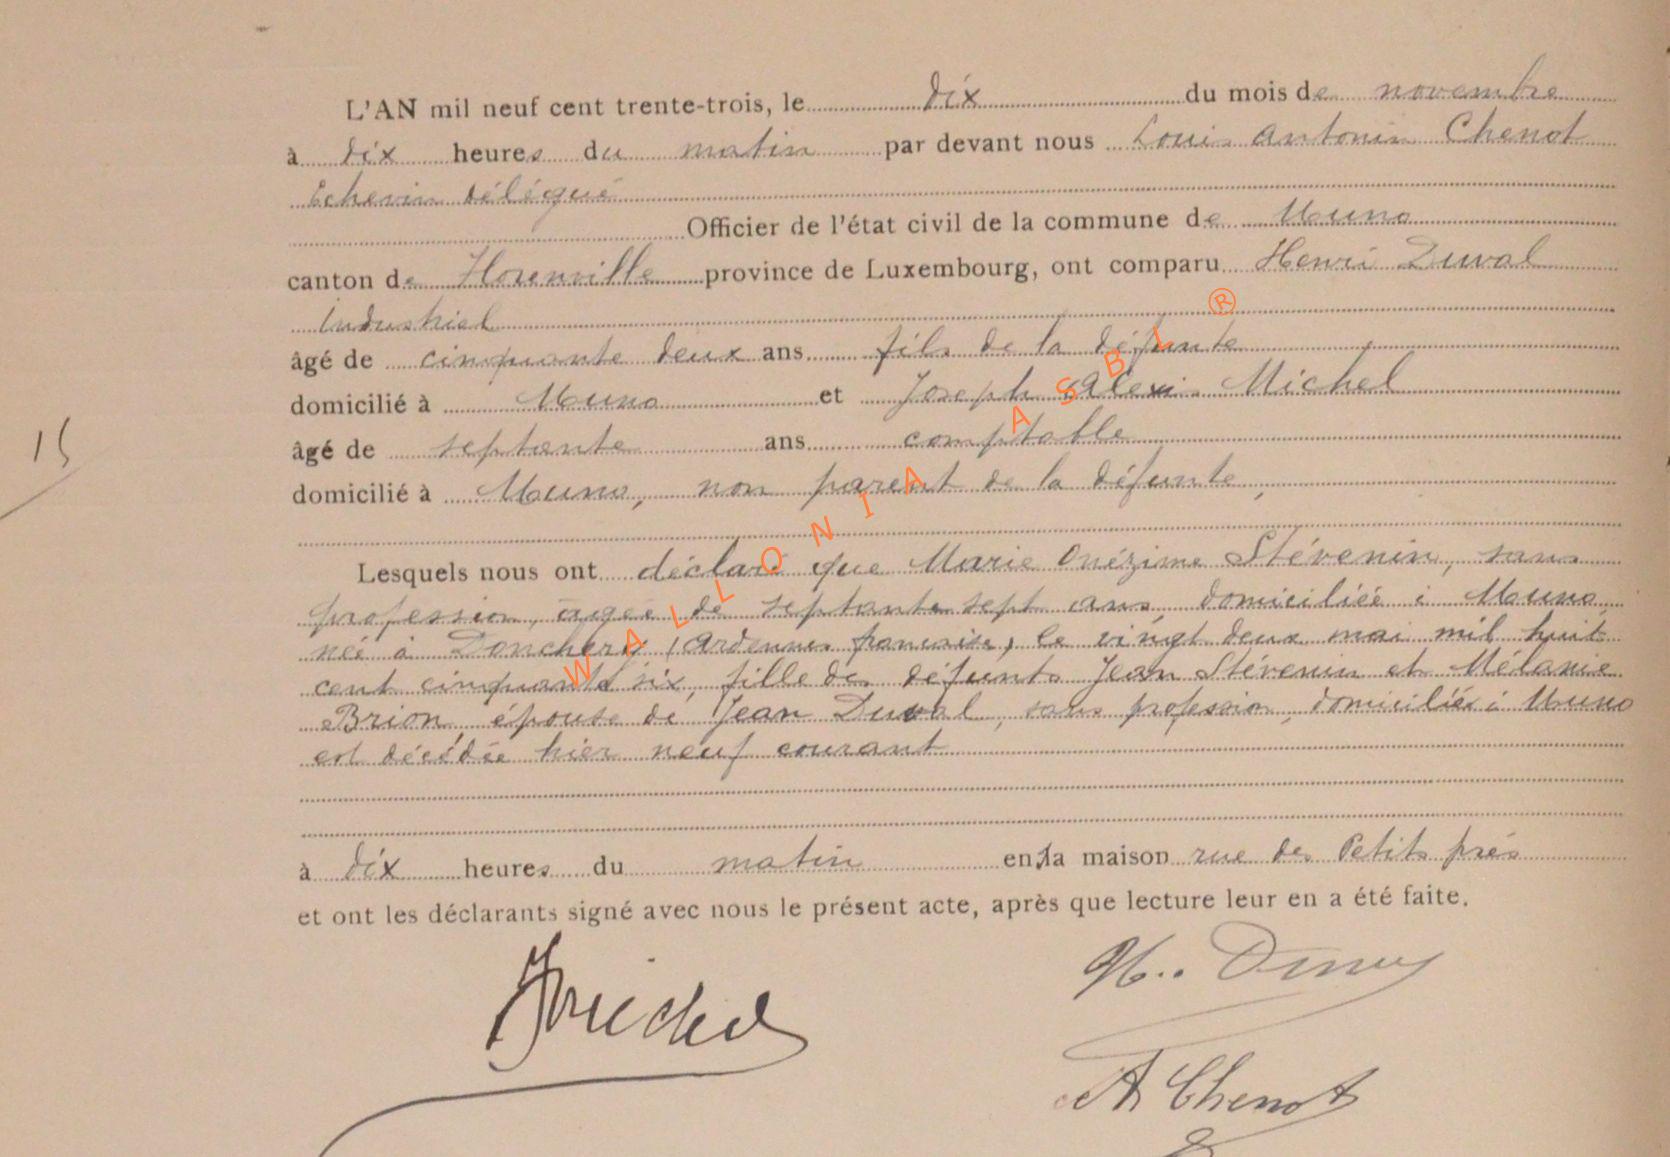 L'AN mil neuf cent trente-trois, le dix du mois de novembre
à dix heures du matin par devant nous Louis Antonin Chenot
Echevin délégué
Officier de l'état civil de la commune de Muno
canton de Florenville province de Luxembourg, ont comparu Henri Duval
Industriel
âgé de cinquante deux ans fils de la défunte
domicilié à Muno et Joseph Alexis Michel
âgé de septante ans comptable
15
domicilié à Muno, non parent de la défunte,
Lesquels nous ont déclaré que Marie Onézime Stévenin, sans
profession, âgée de septante sept ans, domiciliée à Muno,
née à Donchery (Ardennes française) le vingt deux mai mil huit
cent cinquante six, fille des défunts Jean Stévenin et Mélanie
Brion, épouse de Jean Duval, sans profession, domiciliée à Muno
est décédée hier neuf courant
à dix heures du matin en la maison rue des Petits prés
et ont les déclarants signé avec nous le présent acte, après que lecture leur en a été faite.
JMichel
A Chenot
WALLONIA ASBL ®